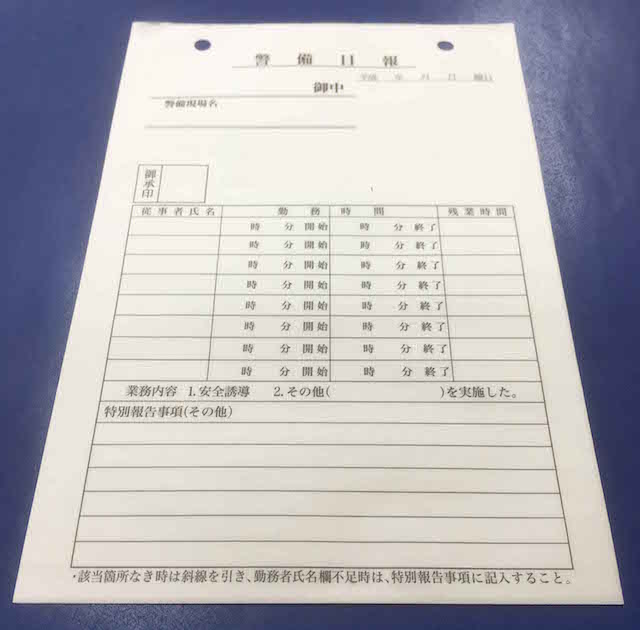 警備日報
平成 年 月 日 曜日
御中
警備現場名
御承印
従事者氏名 勤務時間 残業時間
時 分 開始 時 分 終了
時 分 開始 時 分 終了
時 分 開始 時 分 終了
時 分 開始 時 分 終了
時 分 開始 時 分 終了
時 分 開始 時 分 終了
時 分 開始 時 分 終了
時 分 開始 時 分 終了
業務内容 1.安全誘導 2.その他( )を実施した。
特別報告事項(その他)
・該当箇所なき時は斜線を引き、勤務者氏名欄不足時は、特別報告事項に記入すること。